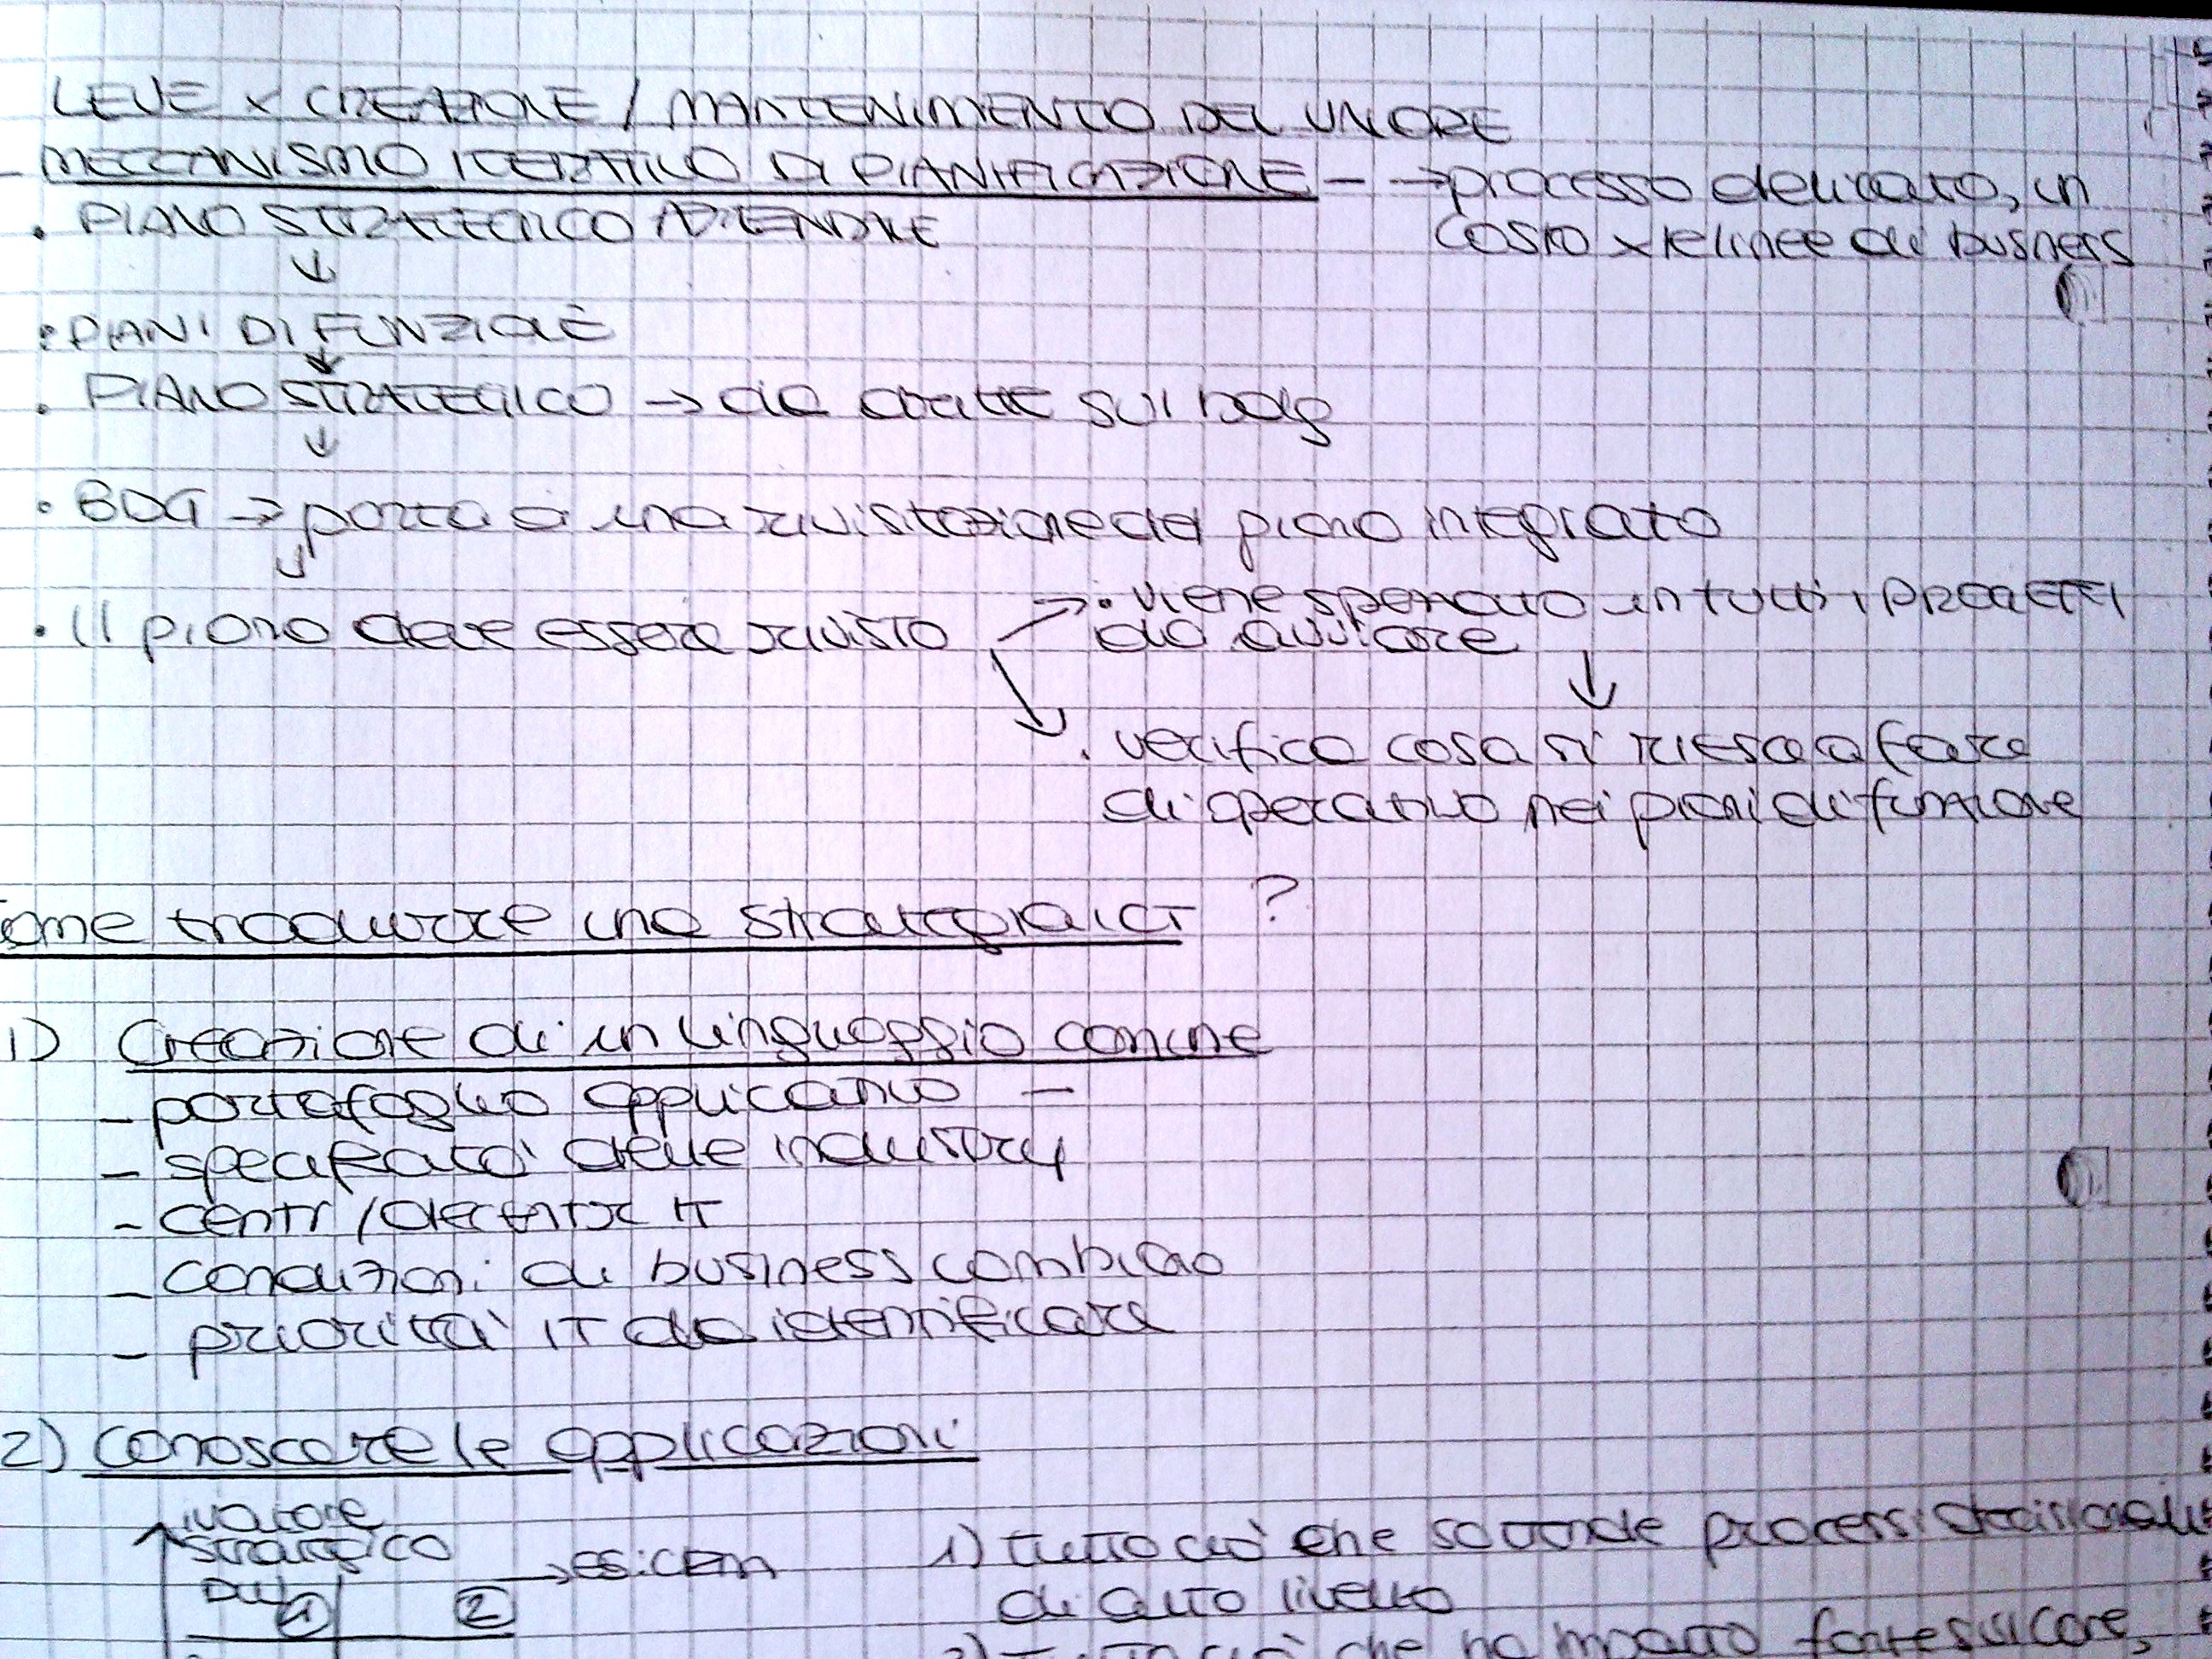 LEVE x CREAZIONE / MANTENIMENTO DEL VALORE
- MECCANISMO ITERATIVO DI PIANIFICAZIONE - → processo delicato, un
costo x le linee di business
• PIANO STRATEGICO AZIENDALE
↓
• PIANI DI FUNZIONE
↓
• PIANO STRATEGICO → da
↓
• BDG → porta a una rivisitazione del piano integrato
↓
• Il piano deve essere rivisto → • viene in tutti i PROGETTI
da avviare
↓
• verifica cosa si riesce a fare
di operativo nei piani di funzione
ome tradurre una strategia ICT ?
1) Creazione di un linguaggio comune
- portafoglio applicativo -
- specificità delle industry
- centr/decentr IT
- condizioni di business cambiano
- priorità IT da identificare
2) conoscere le applicazioni
valore
strategico
① ② → es: CRM
1) tutto ciò che sottende processi decisionali
di alto livello
2) Tutto ciò che ha impatto forte sul core,